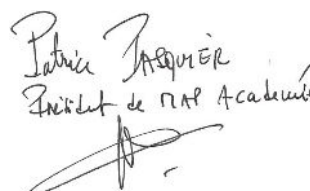 Patrice PASQUIER
Président de MAP Académie